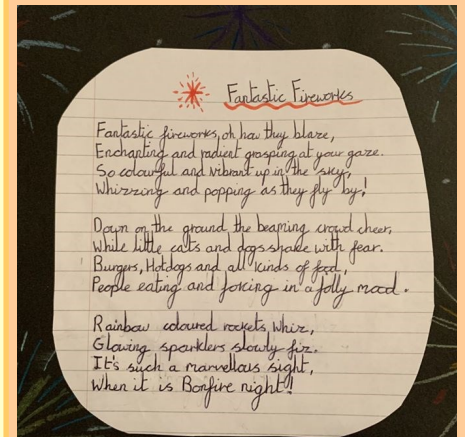 Fantastic Fireworks
Fantastic fireworks, oh how they blaze,
Enchanting and radient grasping at your gaze.
So colourful and vibrant up in the sky,
Whizzing and popping as they fly by!
Down on the ground the beaming crowd cheer,
While little cats and dogs shake with fear.
Burgers, Hotdogs and all kinds of food,
People eating and in a jolly mood.
Rainbow coloured rockets whiz,
Glowing sparklers slowly fiz.
It's such a marvellous sight,
When it is Bonfire night!